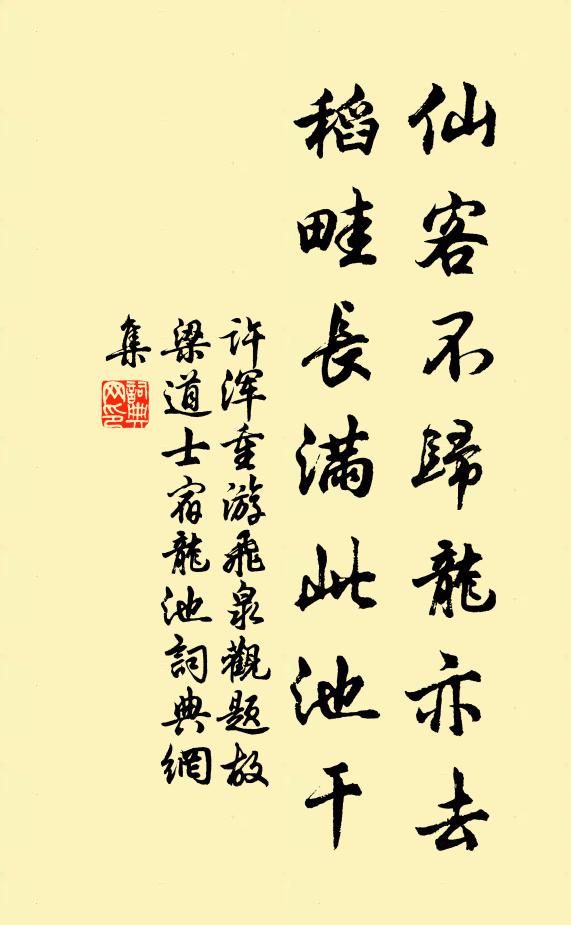 仙客不歸龍亦去
稻畦長滿此池干
许渾重游飛泉觀題故
梁道士宿龍池詞典網
集
詞典网印